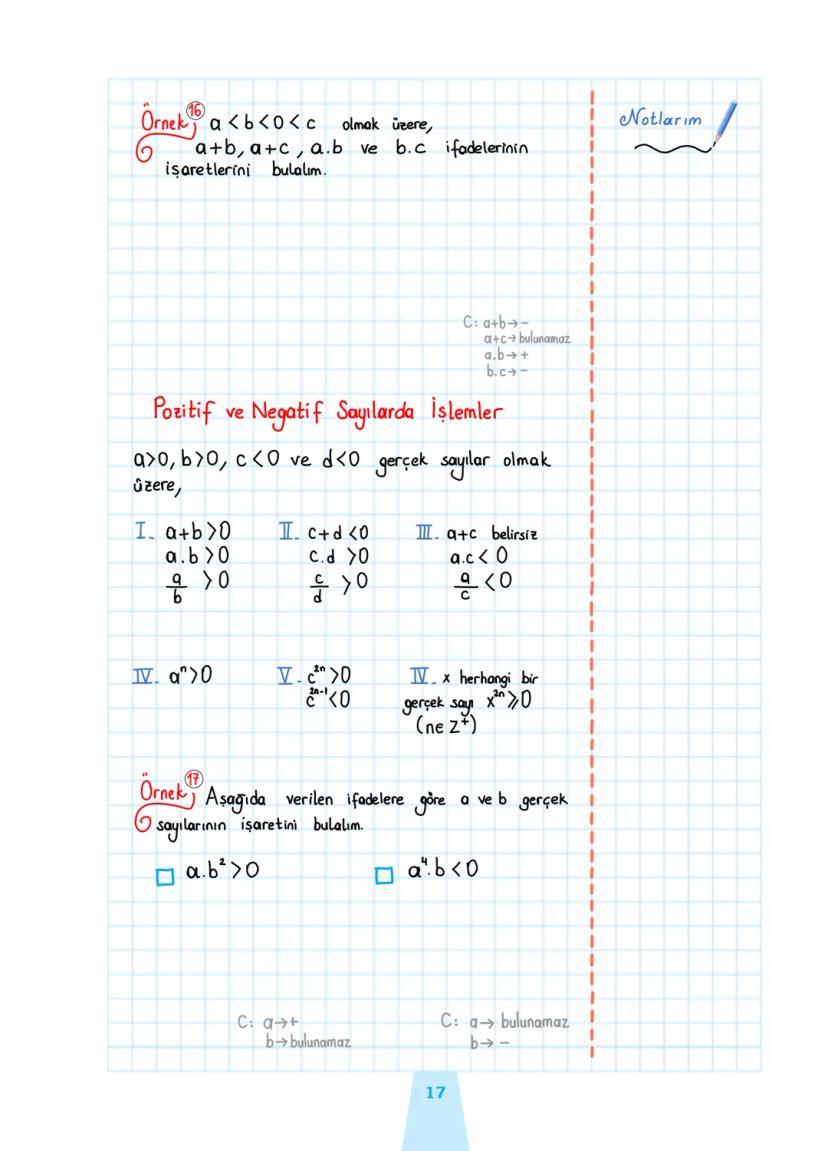 Örnek 16 a < b < 0 < c olmak üzere,
a+b, a+c, a.b ve b.c ifadelerinin
işaretlerini bulalım.
Notlarım
C: a+b→ -
a+c→ bulunamaz
a.b→ +
b.c→ -
Pozitif ve Negatif Sayılarda İşlemler
a>0, b>0, c<0 ve d<0 gerçek sayılar olmak
üzere,
I. a+b>0
a.b>0
a/b >0
II. c+d<0
c.d >0
c/d >0
III. a+c belirsiz
a.c< 0
a/c <0
IV. aⁿ>0
V. c²ⁿ>0
c²ⁿ⁻¹<0
IV. x herhangi bir
gerçek sayı x²ⁿ⩾0
(n∈ Z⁺)
Örnek 17 Aşağıda verilen ifadelere göre a ve b gerçek
sayılarının işaretini bulalım.
a.b²>0
a⁴.b<0
C: a→+
b→bulunamaz
C: a→ bulunamaz
b→ -
17